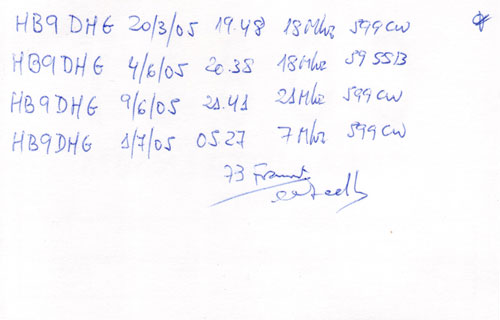 HB9DHG 20/3/05 19.48 18Mhz 599CW
HB9DHG 4/6/05 20.35 18Mhz 59 SSB
HB9DHG 9/6/05 21.41 21Mhz 599CW
HB9DHG 1/7/05 05.27 7Mhz 599CW
73